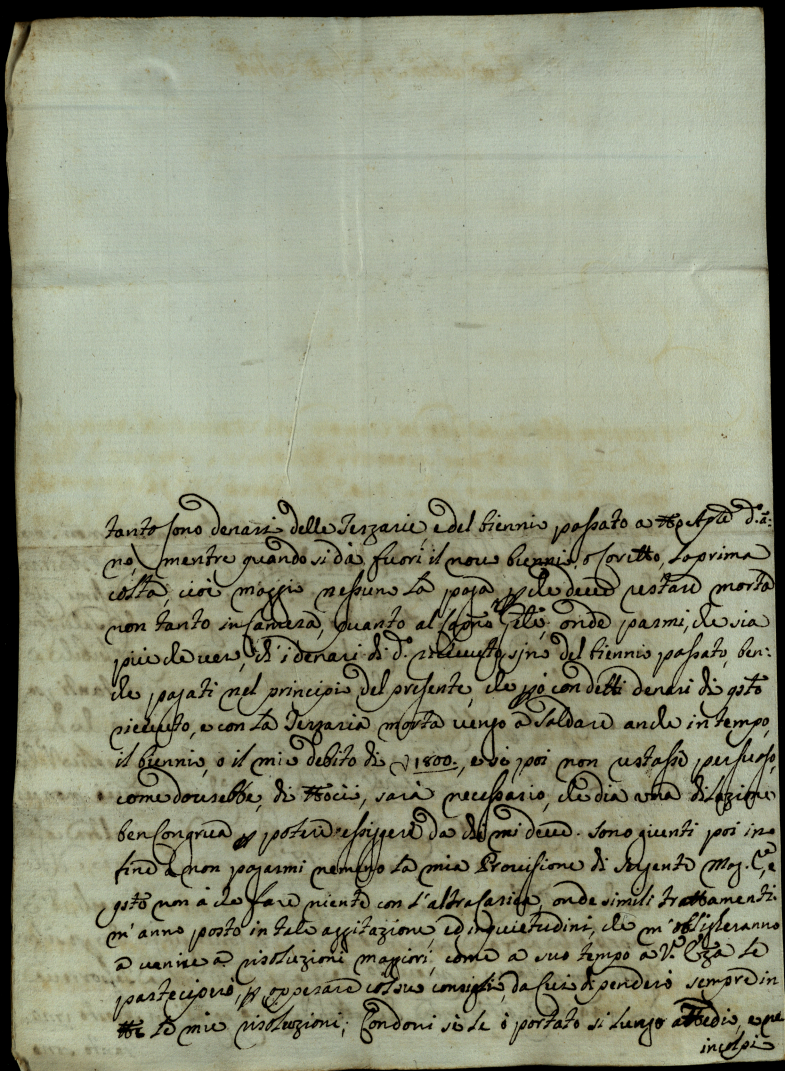 tanto sono denari delle Terzarie, e del biennio passato a tto Aple d.a an:
no, mentre quando si dà fuori il novo biennio, o Corsetto, la prima
cosa, cioè maggio nessuno la paga, p che deve restare morta
non tanto in Camera, quanto al Sigre onde parmi, che sia
più che vero, ch'i denari di d.o riceuuto, sijno del biennio passato, ben:
che pagati nel principio del presente, che però con detti denari di qsto
riceuuto, e con la Terzaria morta vengo a saldare anche in tempo,
il biennio, o il mio debito di 1800., e se poi non restasse persuaso,
come dovrebbe, di ttociò, sarà necessario, che dia una dilazione
ben congrua p potere essiggere da chi mi deve. sono giunti poi in
fine à non pagarmi nemeno la mia Provisione di Sergente Mag.re, e
qsto non à che fare niente con l'altra Carica, onde simili trattamenti
m'anno posto in tale aggitazione, ed inquietudini, che m'obligheranno
a venire a risoluzioni maggiori, come a suo tempo a V.a Ecza le
parteciperò, p opperare col suo consiglio, da cui dipenderò sempre in
tte le mie risoluzioni; Condoni se le ò portato si lungo attedio, e ne
incolpi